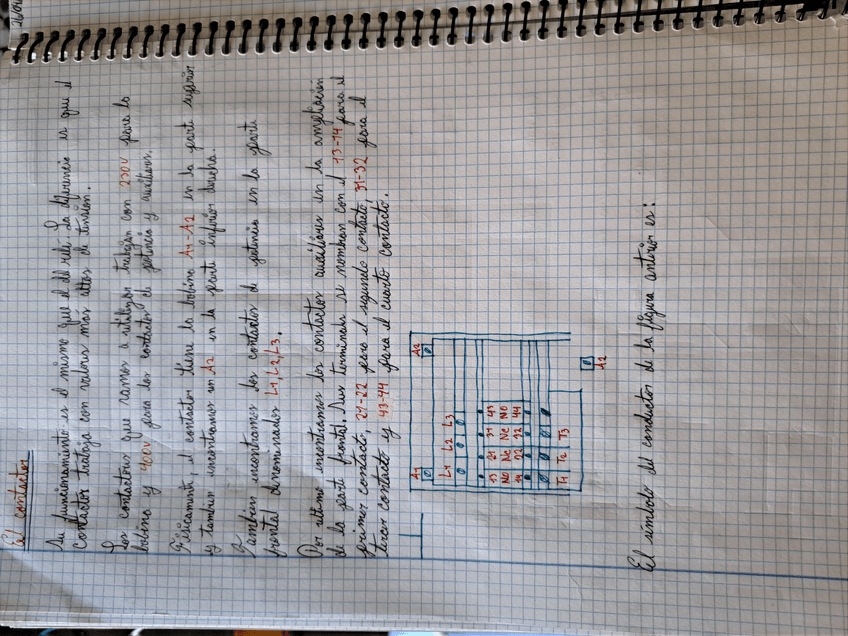 El contactor
Su funcionamiento es el mismo que el del relé. La diferencia es que el
contactor trabaja con valores más altos de tensión.
Los contactores que vamos a utilizar trabajan con 230V para la
bobina y 400V para los contactos de potencia y auxiliares.
Físicamente, el contactor tiene la bobina A1-A2 en la parte superior
y tambien encontramos un A2 en la parte inferior derecha.
También encontramos los contactos de potencia en la parte
frontal denominados L1, L2, L3.
Por ultimo encontramos los contactos auxiliares en la ampliación
de la parte frontal. Sus terminales se nombran con el 13-14 para el
primer contacto, 21-22 para el segundo contacto, 31-32 para el
tercer contacto y 43-44 para el cuarto contacto.
A1 A2
L1 L2 L3
13 21 31 43
NO NC NC NO
14 22 32 44
T1 T2 T3
A2
El símbolo del conductor de la figura anterior es: